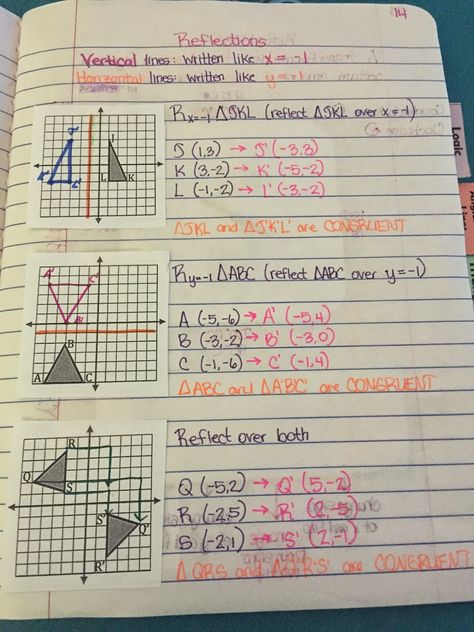 14
Reflections
Vertical lines: written like x = -1
Horizontal lines: written like y = -1
Rx=-1 △JKL (reflect △JKL over x = -1)
J (1,3) → J' (-3,3)
K (3,-2) → K' (-5,-2)
L (-1,-2) → L' (-3,-2)
△JKL and △J'K'L' are CONGRUENT
J' J
K' L' L K
Ry=-1 △ABC (reflect △ABC over y = -1)
A (-5,-6) → A' (-5,4)
B (-3,-2) → B' (-3,0)
C (-1,-6) → C' (-1,4)
△ABC and △A'B'C' are CONGRUENT
A' C'
B'
B
A C
Reflect over both
Q (-5,2) → Q' (5,-2)
R (-2,5) → R' (2,-5)
S (-2,1) → S' (2,-1)
△QRS and △Q'R'S' are CONGRUENT
R
Q S
S' Q'
R'
Logic